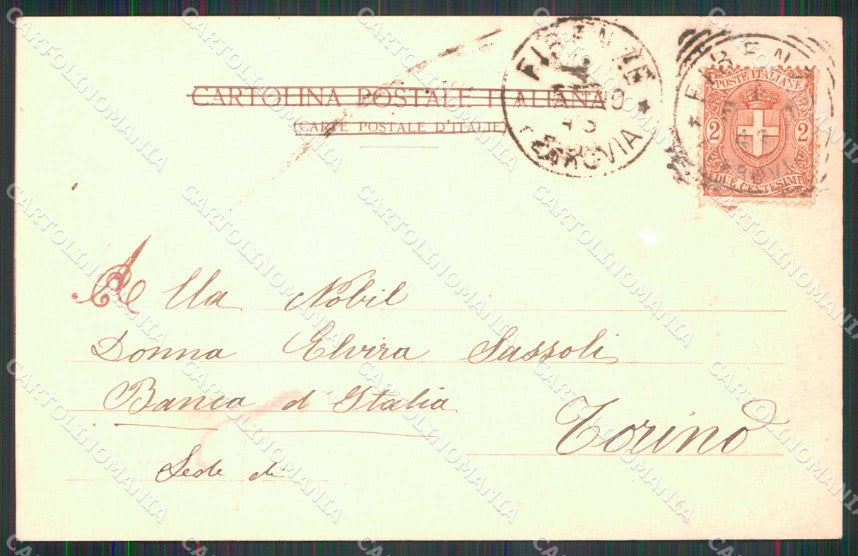 CARTOLINA POSTALE ITALIANA
(CARTE POSTALE D'ITALIE)
FIRENZE
FERROVIA
FIRENZE
FERROVIA
POSTE ITALIANE
2 2
DUE CENTESIMI
Alla Nobil
Donna Elvira Sassoli
Banca d'Italia
Sede di
Torino
CARTOLINOMANIA